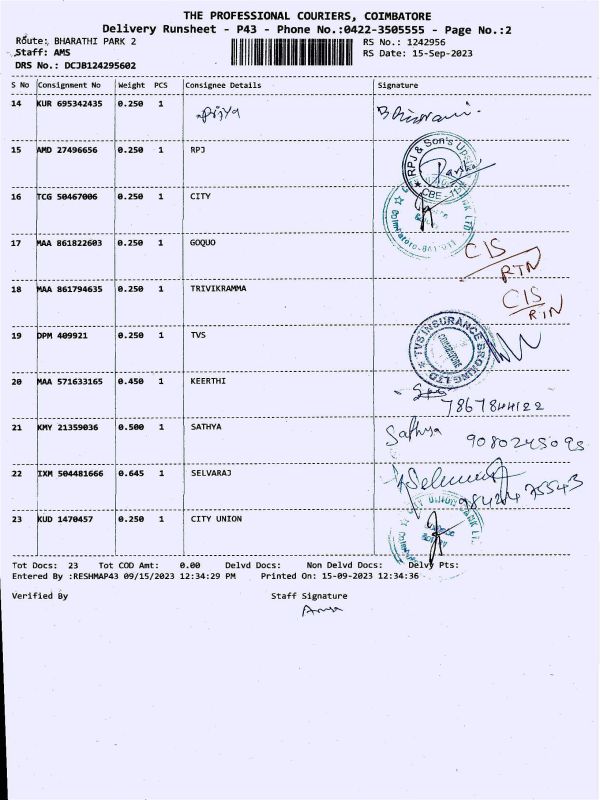 THE PROFESSIONAL COURIERS, COIMBATORE
Delivery Runsheet - P43 - Phone No.:0422-3505555 - Page No.:2
Route: BHARATHI PARK 2 RS No.: 1242956
Staff: AMS RS Date: 15-Sep-2023
DRS No.: DCJB124295602
S No Consignment No Weight PCS Consignee Details Signature
14 KUR 695342435 0.250 1 Priya
15 AMD 27496656 0.250 1 RPJ
RPJ & Son's
CBE
16 TCG 50467006 0.250 1 CITY
17 MAA 861822603 0.250 1 GOQUO CIS
RTN
18 MAA 861794635 0.250 1 TRIVIKRAMMA CIS
RTN
19 DPM 409921 0.250 1 TVS
TVS INSURANCE BROKING LTD
COIMBATORE
20 MAA 571633165 0.450 1 KEERTHI
7867844122
21 KMY 21359036 0.500 1 SATHYA Sathya 9080245095
22 IXM 504481666 0.645 1 SELVARAJ
9842475543
23 KUD 1470457 0.250 1 CITY UNION
Tot Docs: 23 Tot COD Amt: 0.00 Delvd Docs: Non Delvd Docs: Delvy Pts:
Entered By :RESHMAP43 09/15/2023 12:34:29 PM Printed On: 15-09-2023 12:34:36
Verified By Staff Signature